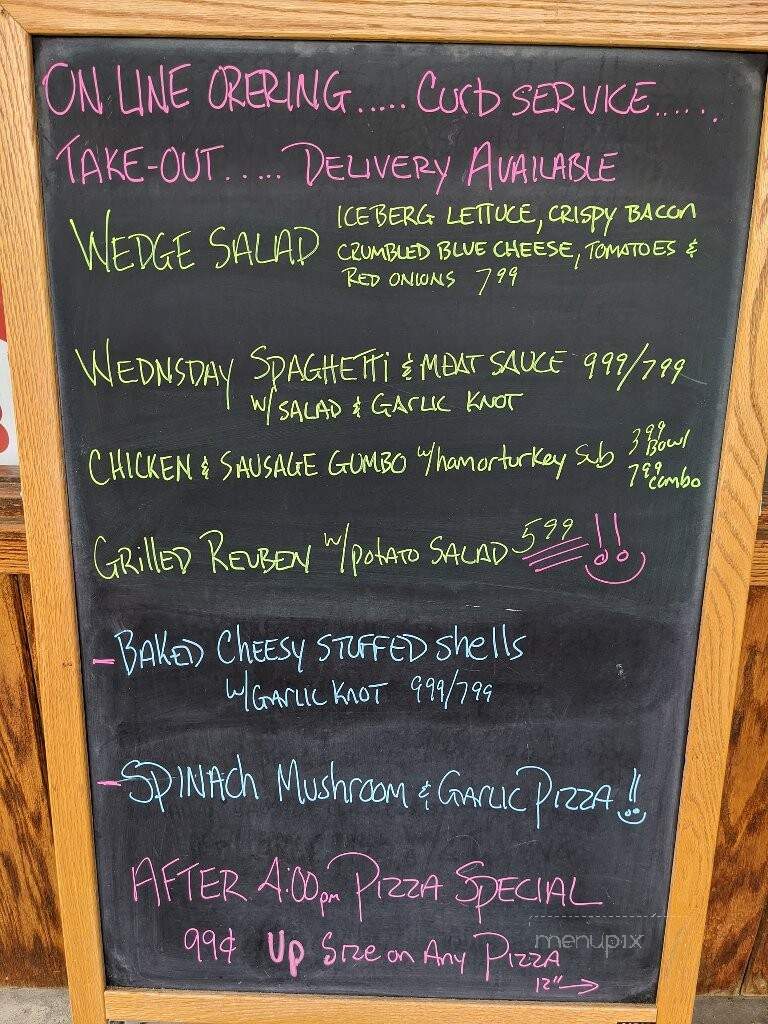 ON LINE ORERING..... Curb SERVICE......
TAKE-OUT..... DELIVERY AVAILABLE
WEDGE SALAD ICEBERG LETTUCE, CRISPY BACON
CRUMBLED BLUE CHEESE, TOMATOES &
RED ONIONS 799
WEDNSDAY SPAGHETTi & MEAT SAUCE 999/799
W/ SALAD & GARLIC KNOT
CHICKEN & SAUSAGE GUMBO w/hamorturkey Sub 399 Bowl
799 combo
GRilled REUBEN w/potato SALAD 599 !!
- BAKED CHEESY STUFFED Shells
W/GARLIC KNOT 999/799
- SPINACh MushRoom & GARLIC PIZZA !!
AFTER 4:00pm PIZZA SPECIAL
99¢ Up Size on Any PIZZA
12" →
menupix